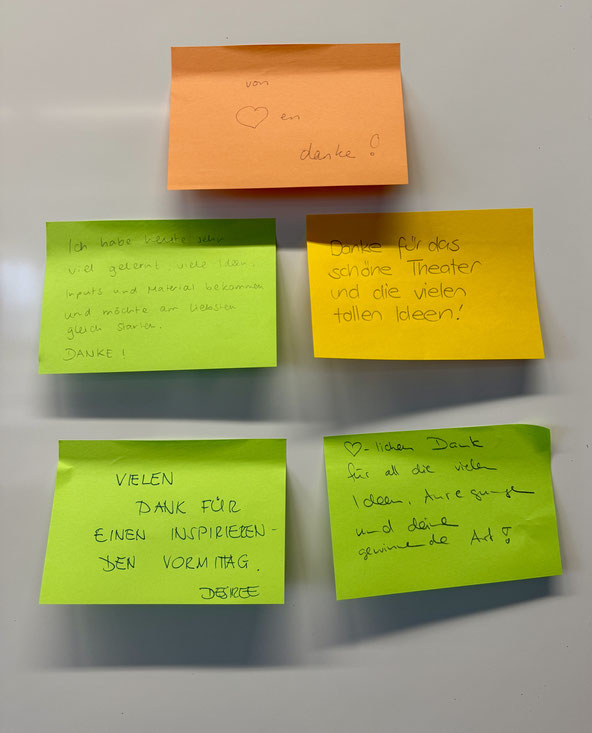 von
♡en
danke!
Ich habe heute sehr
viel gelernt, viele Ideen,
Inputs und Material bekommen
und möchte am liebsten
gleich starten.
DANKE!
Danke für das
schöne Theater
und die vielen
tollen Ideen!
VIELEN
DANK FÜR
EINEN INSPIRIEREN-
DEN VORMITTAG.
DESIREE
♡-lichen Dank
für all die vielen
Ideen, Anregungen
und deine
gewinnende Art!